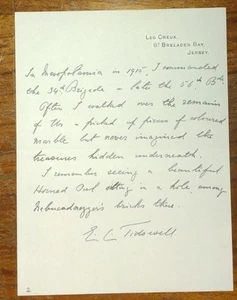 LES CREUX,
ST BRELADE'S BAY,
JERSEY.
In Mesopotamia in 1915, I commanded
the 34th Brigade – late the 56th Bde
Often I walked over the remains
of Ur – & picked up pieces of coloured
marble but never imagined the
treasures hidden underneath.
I remember seeing a beautiful
Horned Owl sitting in a hole, among
Nebuchadnezzar's bricks there.
E C Tidswell